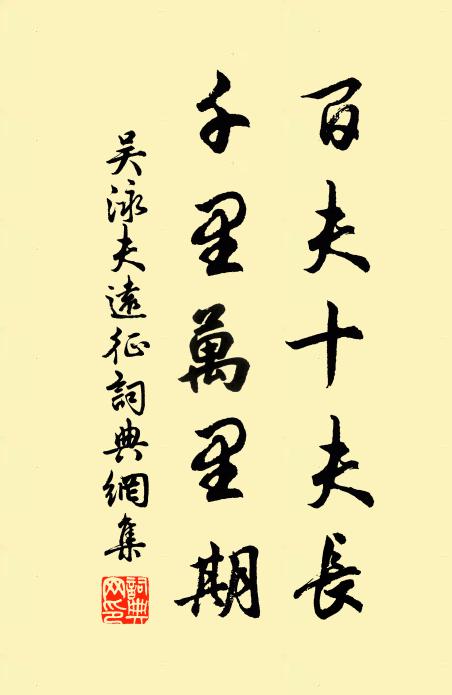 百夫十夫長
千里萬里期
吳泳夫遠征詞典網集
詞典網印